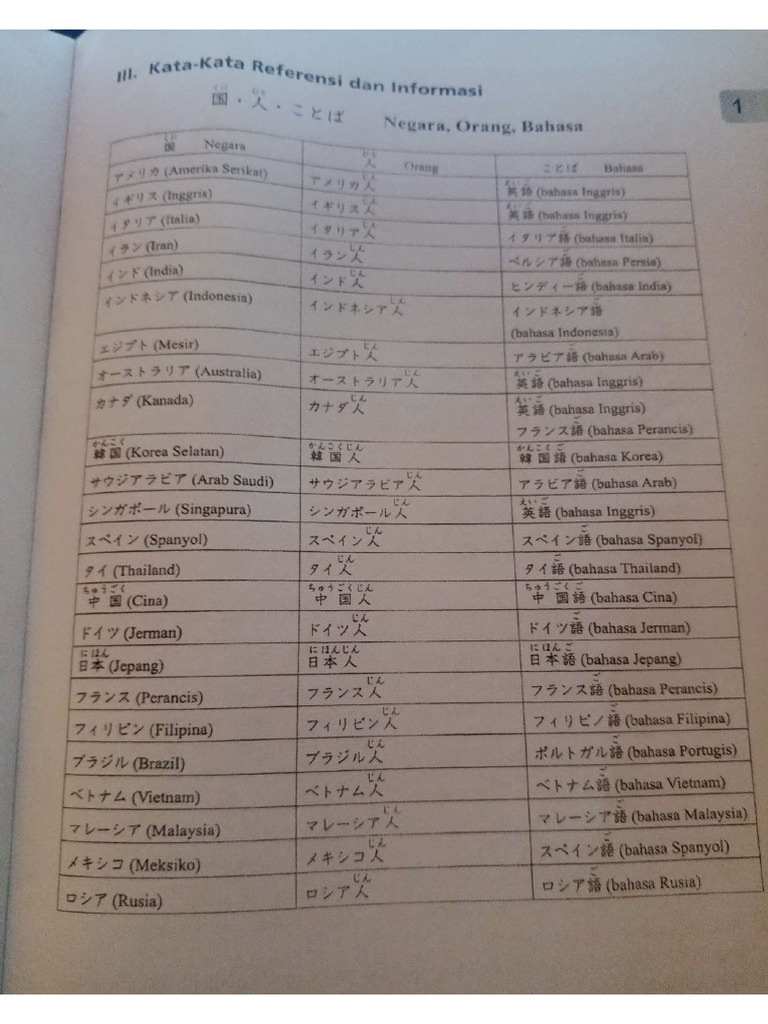 III. Kata-Kata Referensi dan Informasi
1
くに ひと
国・人・ことば Negara, Orang, Bahasa
くに ひと
国 Negara 人 Orang ことば Bahasa
じん えいご
アメリカ (Amerika Serikat) アメリカ人 英語 (bahasa Inggris)
じん えいご
イギリス (Inggris) イギリス人 英語 (bahasa Inggris)
じん ご
イタリア (Italia) イタリア人 イタリア語 (bahasa Italia)
じん ご
イラン (Iran) イラン人 ペルシア語 (bahasa Persia)
じん ご
インド (India) インド人 ヒンディー語 (bahasa India)
じん ご
インドネシア (Indonesia) インドネシア人 インドネシア語
(bahasa Indonesia)
じん ご
エジプト (Mesir) エジプト人 アラビア語 (bahasa Arab)
じん えいご
オーストラリア (Australia) オーストラリア人 英語 (bahasa Inggris)
じん えいご
カナダ (Kanada) カナダ人 英語 (bahasa Inggris)
ご
フランス語 (bahasa Perancis)
かんこく かんこくじん かんこくご
韓国 (Korea Selatan) 韓国人 韓国語 (bahasa Korea)
じん ご
サウジアラビア (Arab Saudi) サウジアラビア人 アラビア語 (bahasa Arab)
じん えいご
シンガポール (Singapura) シンガポール人 英語 (bahasa Inggris)
じん ご
スペイン (Spanyol) スペイン人 スペイン語 (bahasa Spanyol)
じん ご
タイ (Thailand) タイ人 タイ語 (bahasa Thailand)
ちゅうごく ちゅうごくじん ちゅうごくご
中国 (Cina) 中国人 中国語 (bahasa Cina)
じん ご
ドイツ (Jerman) ドイツ人 ドイツ語 (bahasa Jerman)
にほん にほんじん にほんご
日本 (Jepang) 日本人 日本語 (bahasa Jepang)
じん ご
フランス (Perancis) フランス人 フランス語 (bahasa Perancis)
じん ご
フィリピン (Filipina) フィリピン人 フィリピノ語 (bahasa Filipina)
じん ご
ブラジル (Brazil) ブラジル人 ポルトガル語 (bahasa Portugis)
じん ご
ベトナム (Vietnam) ベトナム人 ベトナム語 (bahasa Vietnam)
じん ご
マレーシア (Malaysia) マレーシア人 マレーシア語 (bahasa Malaysia)
じん ご
メキシコ (Meksiko) メキシコ人 スペイン語 (bahasa Spanyol)
じん ご
ロシア (Rusia) ロシア人 ロシア語 (bahasa Rusia)